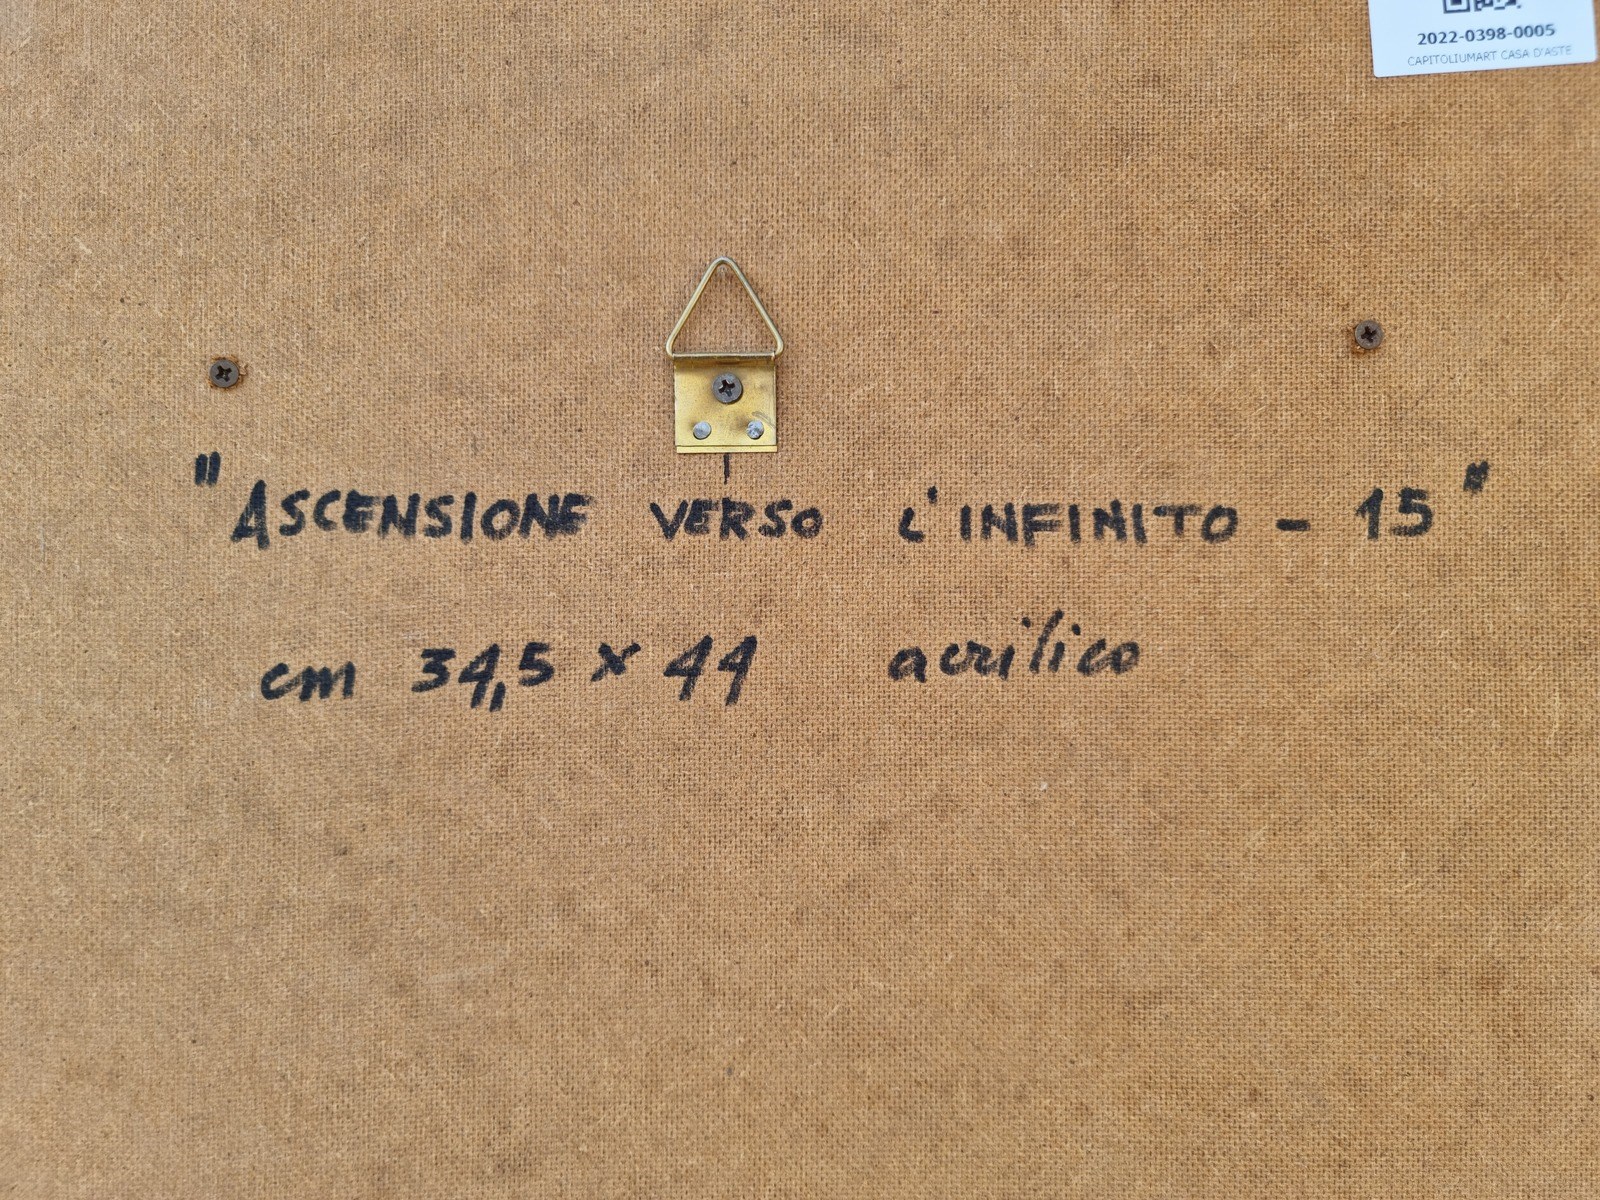 2022-0398-0005
CAPITOLIUMART CASA D'ASTE
"ASCENSIONE VERSO L'INFINITO - 15"
cm 34,5 x 44 acrilico